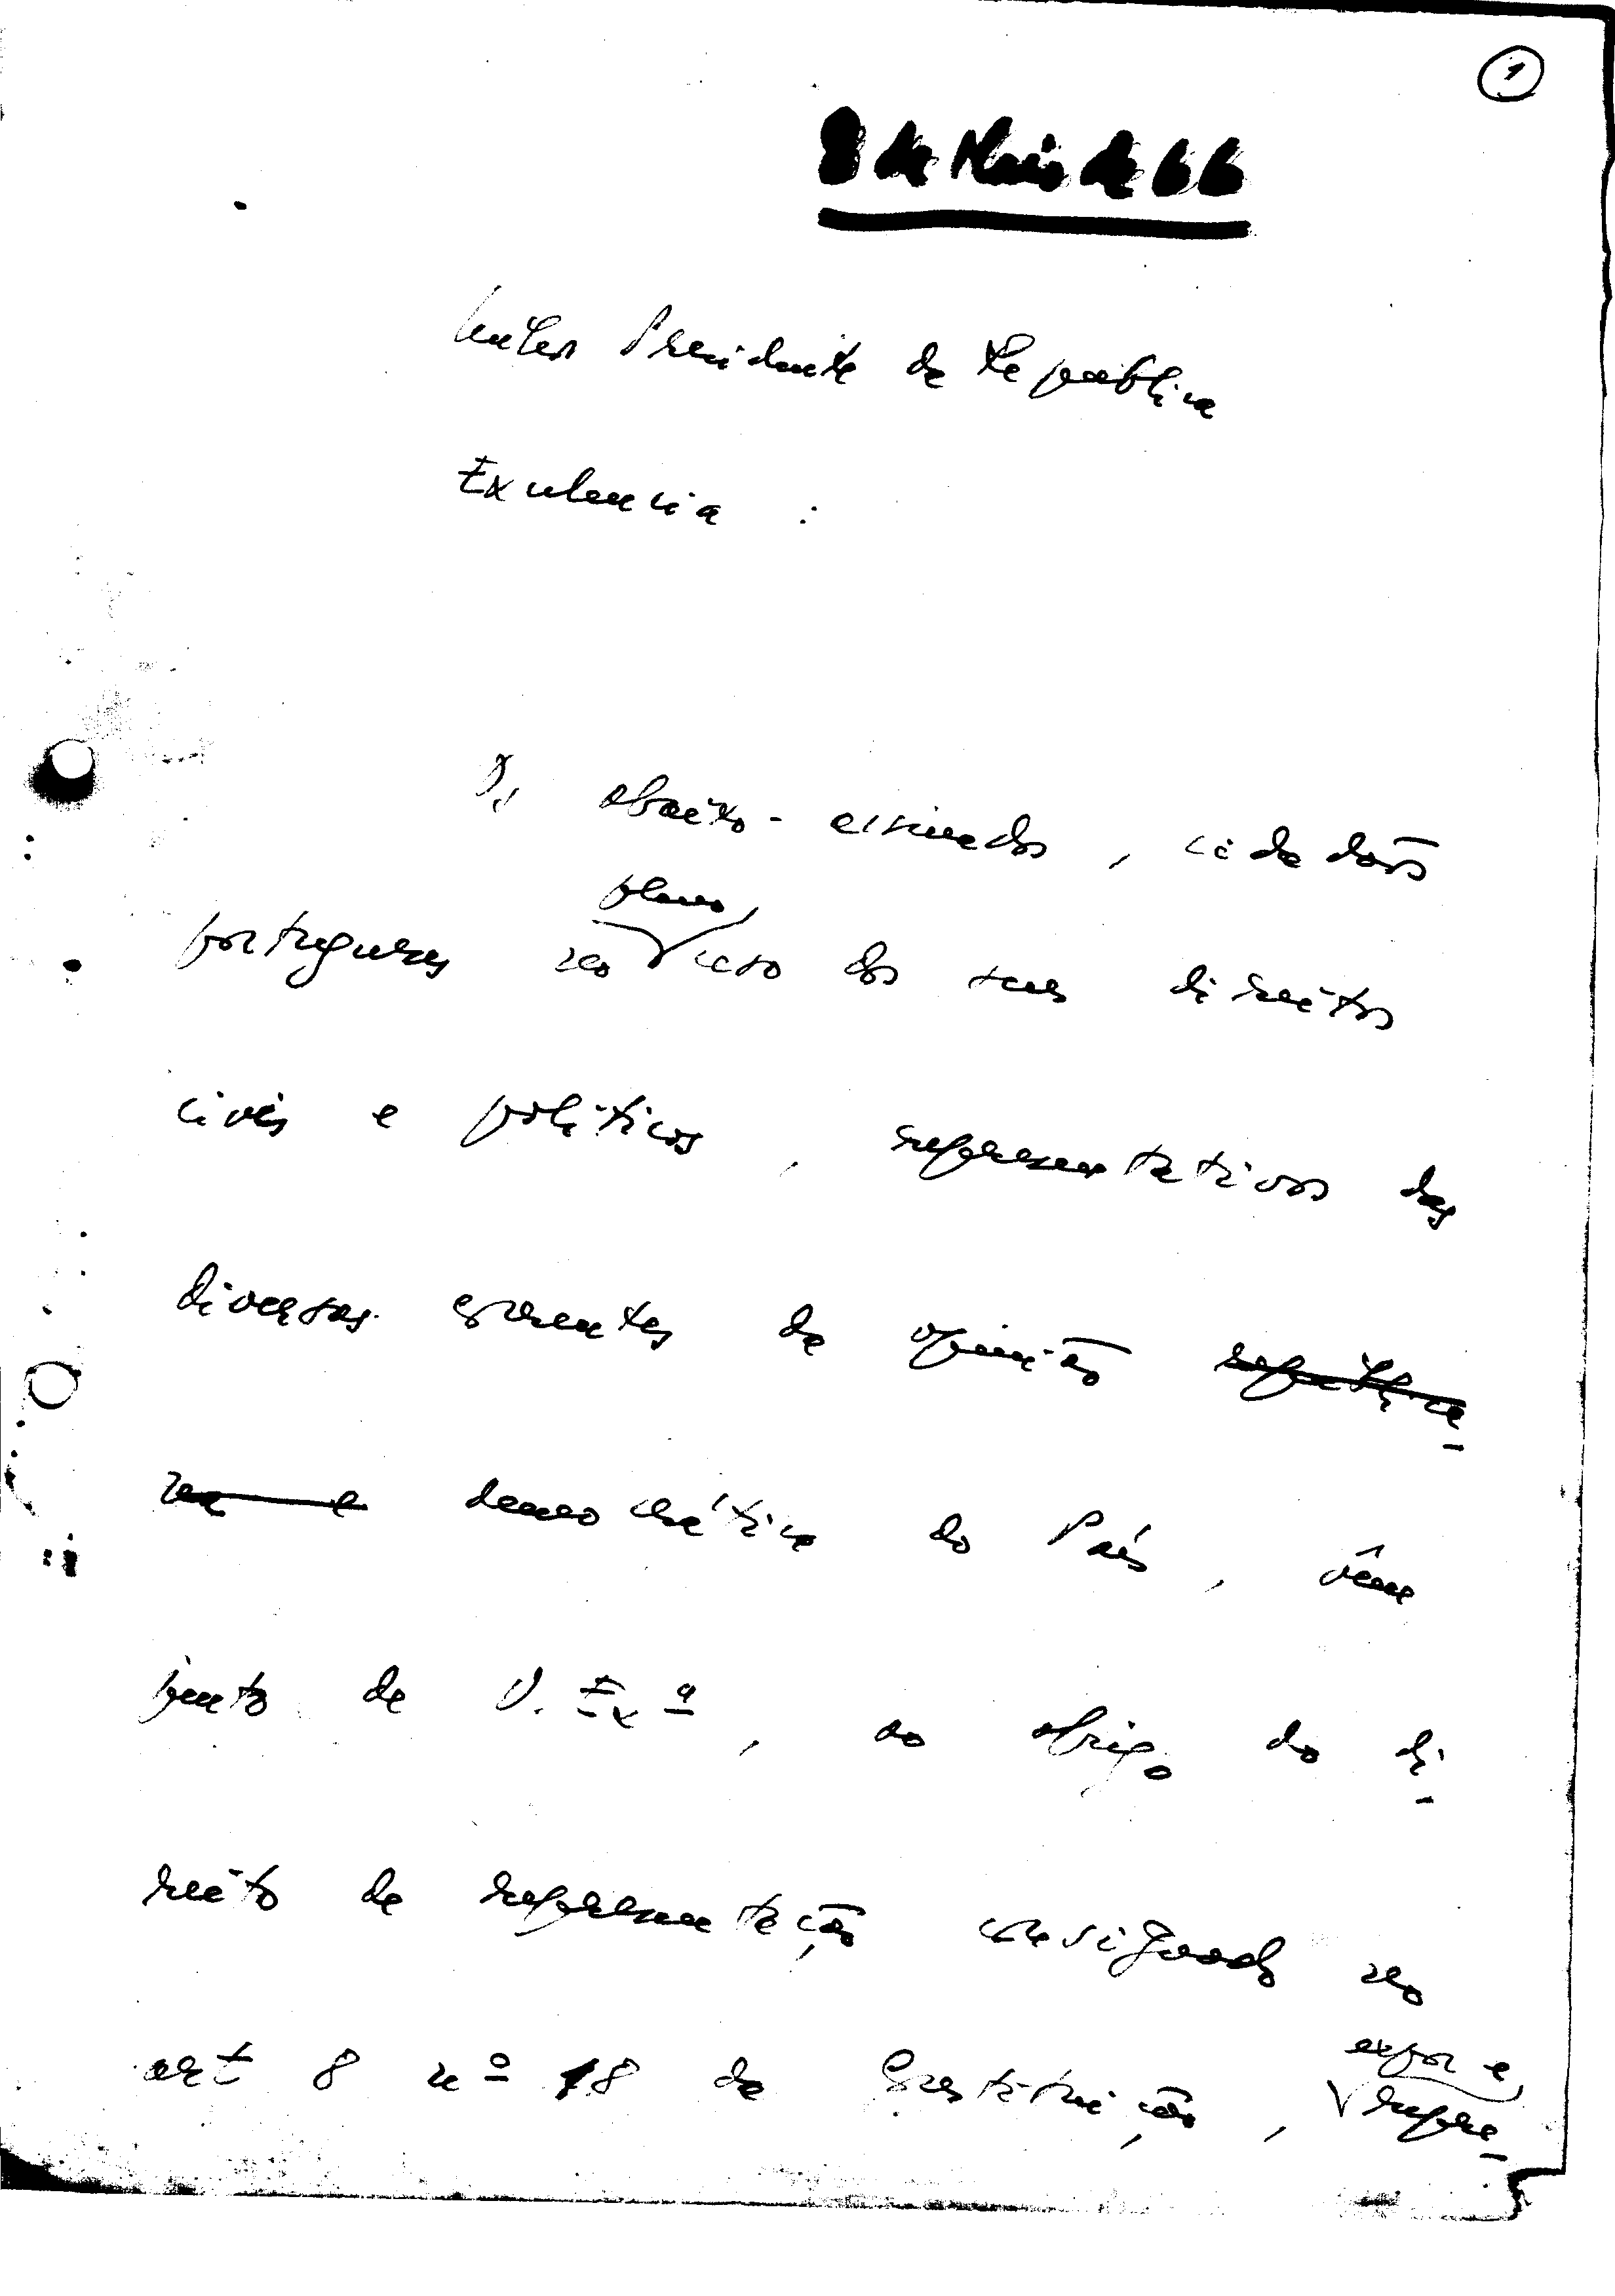 1
8 de Maio de 66
Senhor Presidente da República
Excelencia :
Os abaixo-assinados, cidadãos
pleno
portugueses no uso dos seus direitos
civis e políticos, representativos das
diversas correntes de opinião republica-
na e democrática do País, vêm
junto de V. Exª, ao abrigo do di-
reito de representação consignado no
artº 8 nº 18 da Constituição,
expor e
repre-